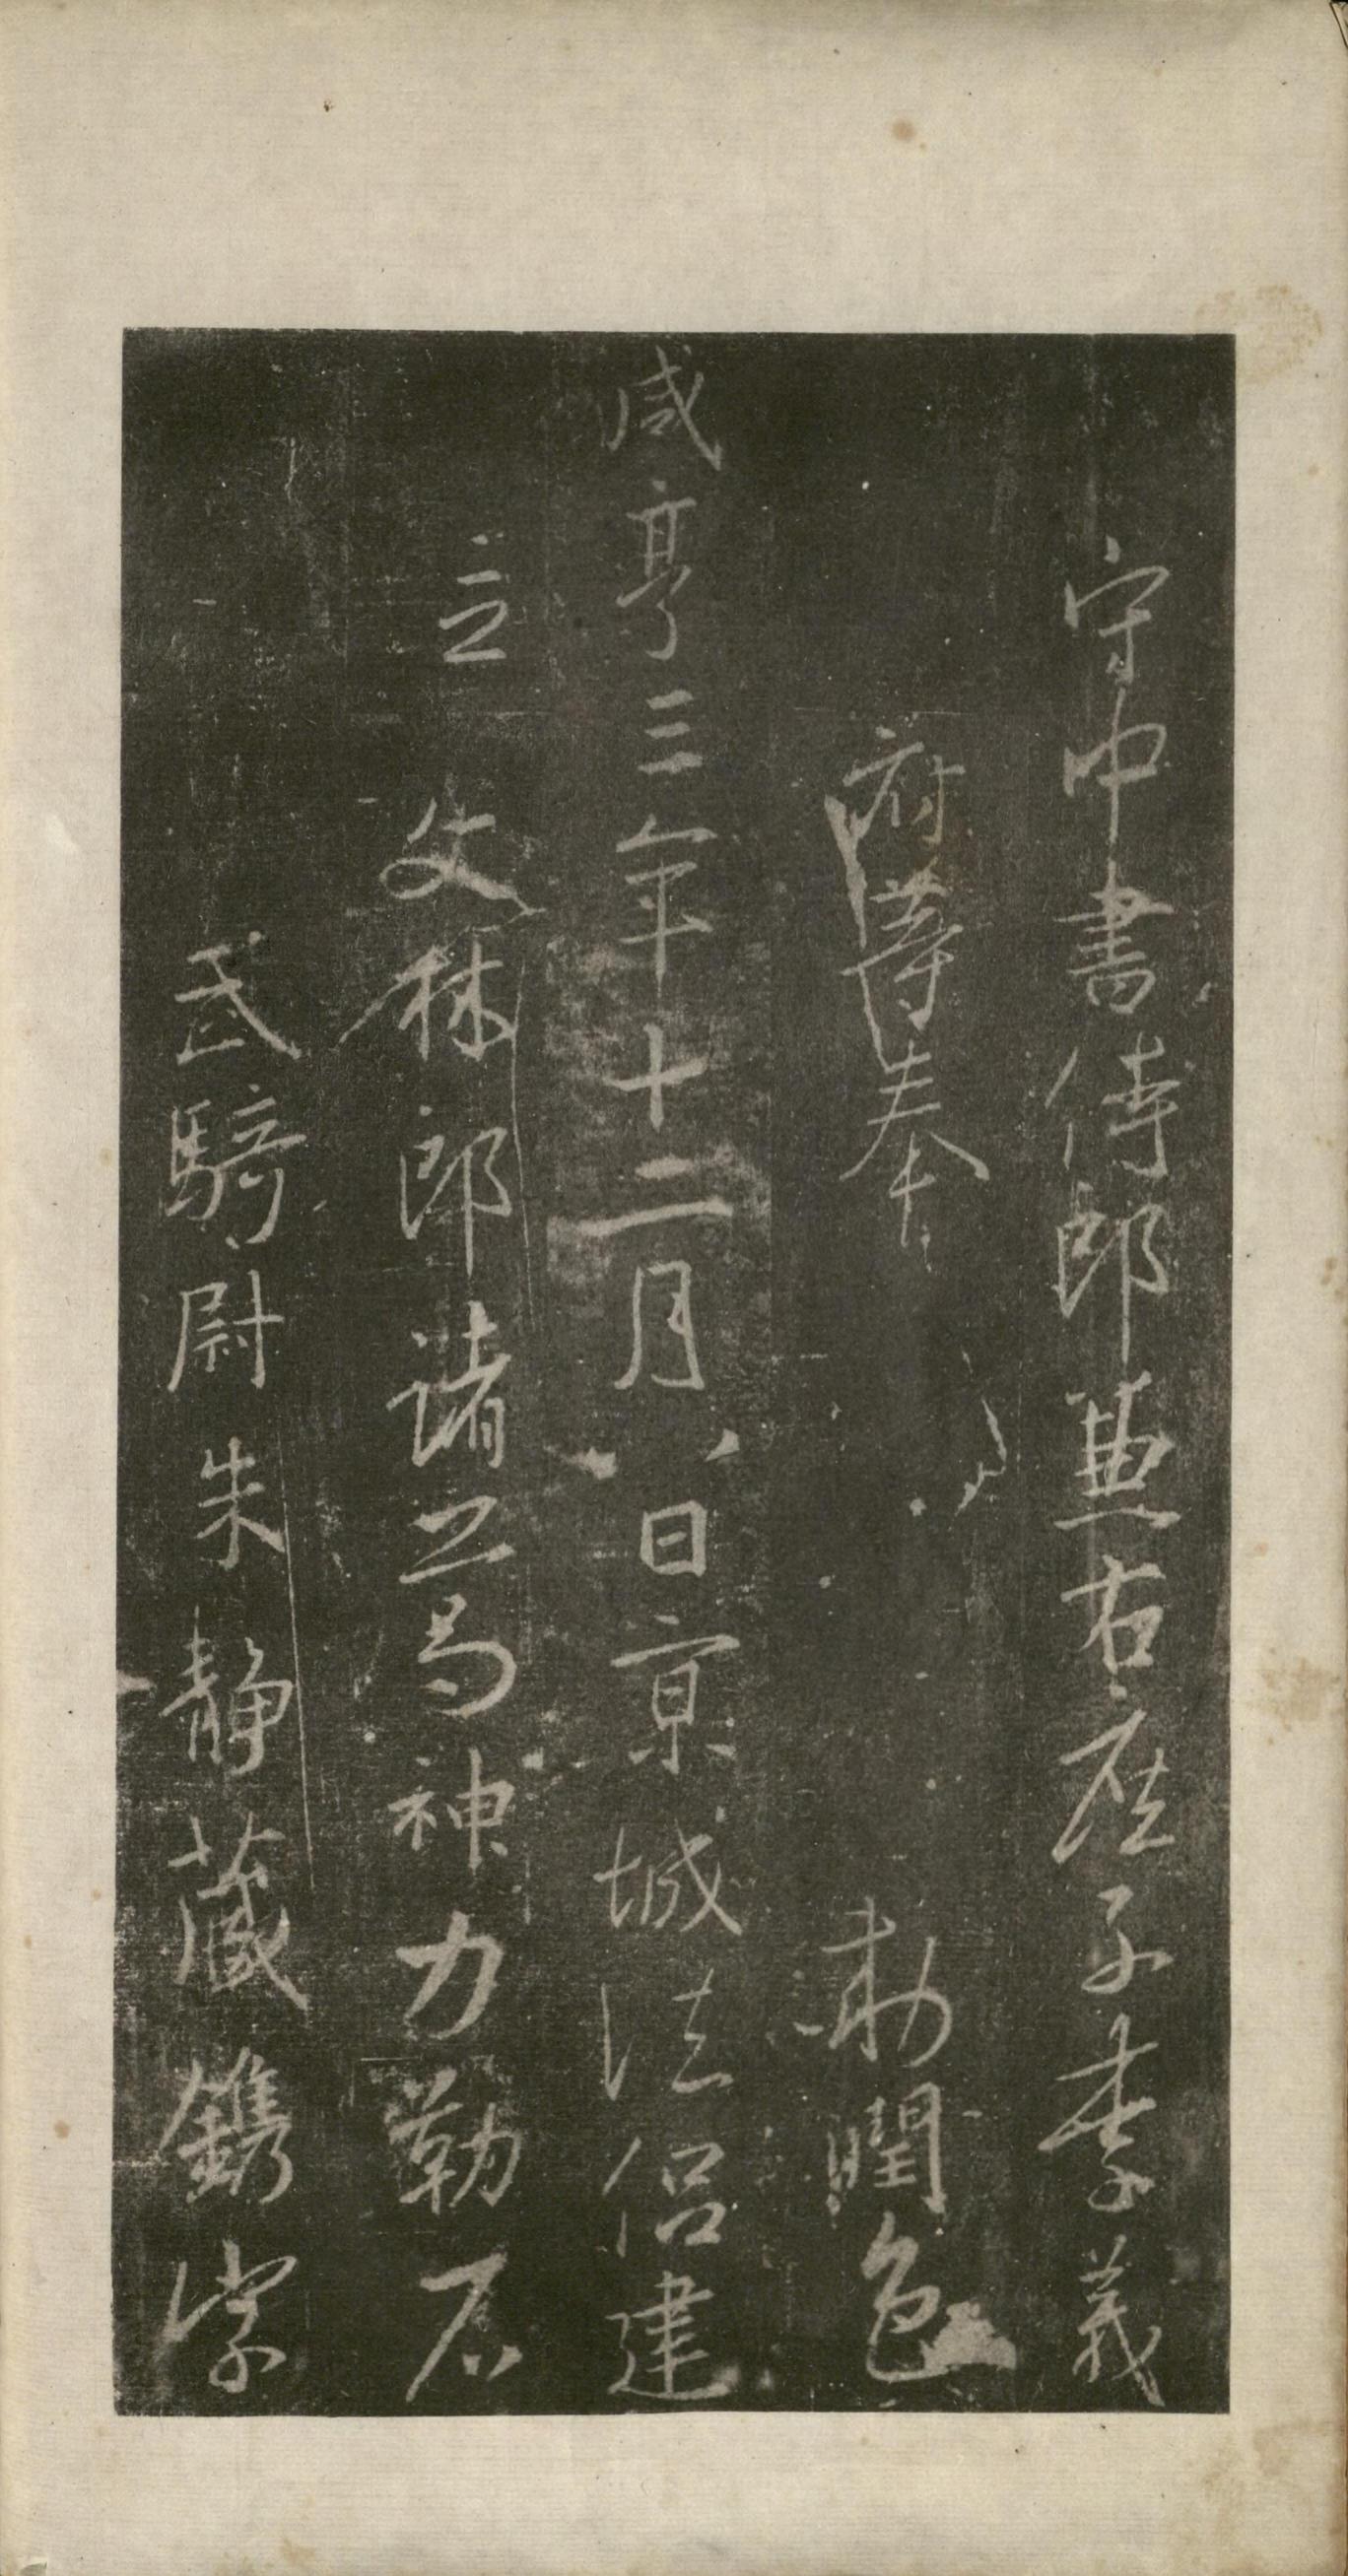 守中書侍郎兼右庶子李義
府等奉　勅潤色
咸亨三年十二月八日京城法侶建
立　文林郎諸葛神力勒石
武騎尉朱靜藏鐫字